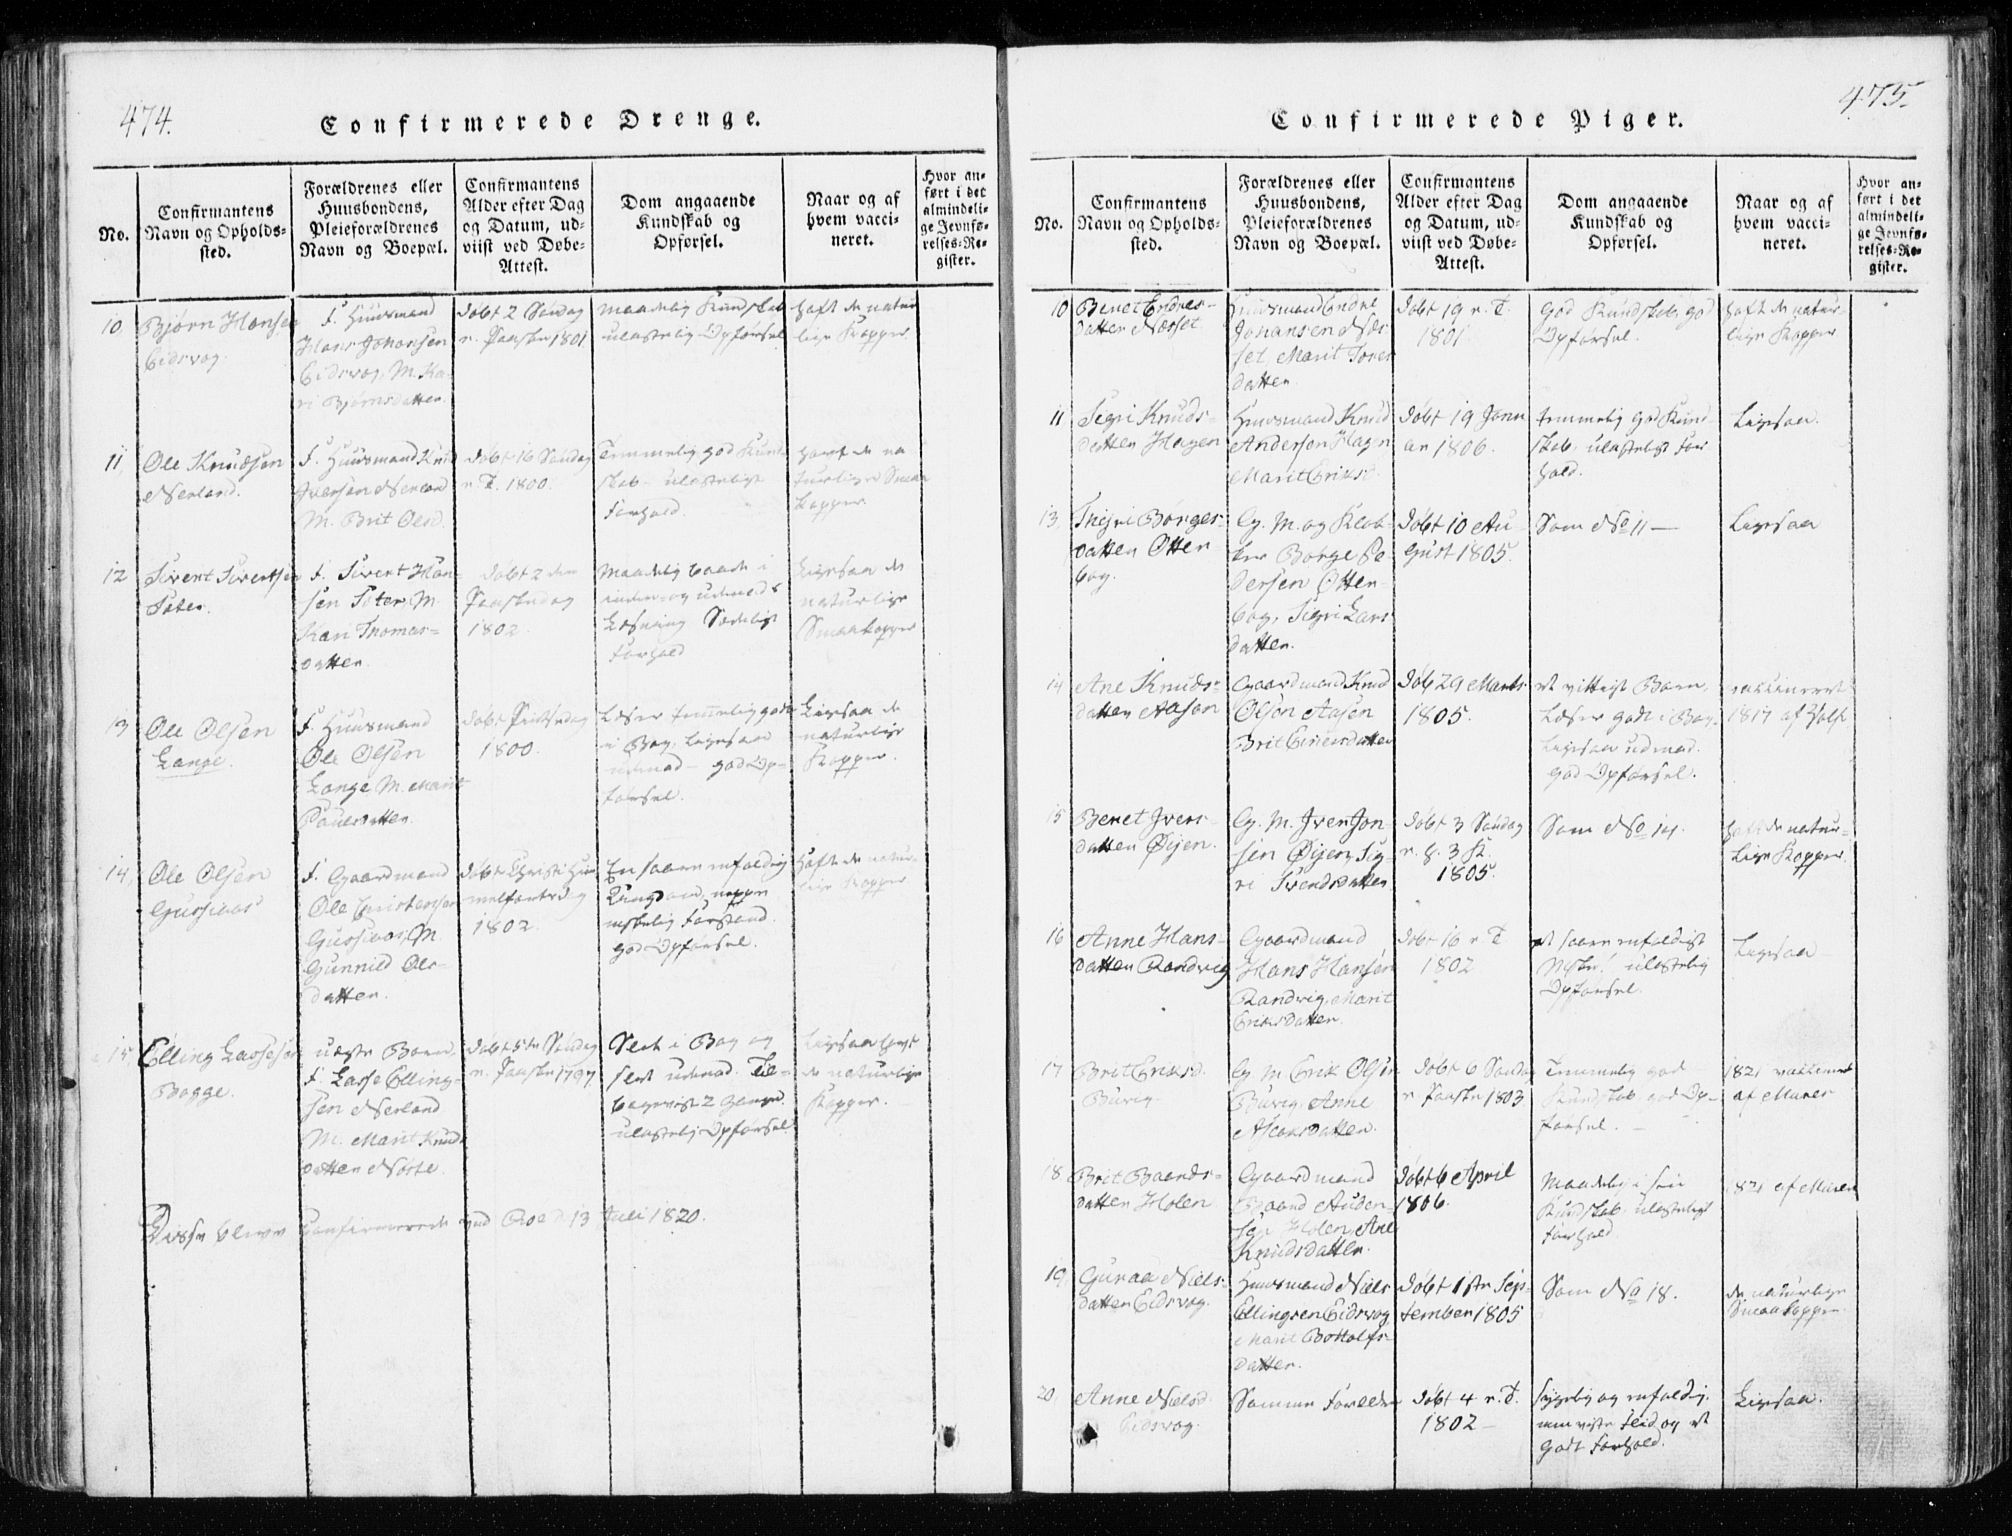 474.
Confirmerede Drenge.
No.
Confirmantens
Navn og Opholds-
sted.
Forældrenes eller
Huusbondens,
Pleieforældrenes
Navn og Boepæl.
Confirmantens
Alder efter Dag
og Datum, ud-
viist ved Døbe-
Attest.
Dom angaaende
Kundskab og
Opførsel.
Naar og af
hvem vacci-
neret.
Hvor an-
ført i det
almindeli-
ge Jevnfø-
relses-Re-
gister.
10
Bjørn Hansen
Eidsvog.
F. Huusmand
Hans Johansen
Eidsvog, M. Ka-
ri Bjørnsdatter.
Døbt 2 Søndag
e. Paaske 1801
maadelig Kundskab
ulastelig Opførsel
haft de natur
lige Kopper
11,
Ole Knudsen
Nerland.
F. Huusmand Knud
Iversen Nerland
M. Brit Olsd.
Døbt 16 Søndag
e. T. 1800.
Temmelig god Kund-
skab. ulasteligt
Forhold.
haft de na
turlige Smaa
kopper
12
Sivert Sivertsen
Sæter.
F. Sivert Han-
sen Sæter, M.
Kari Thomas-
datter.
Døbt 2 den
Paaskedag
1802.
maadelig baade i
inden- og udenads
Læsning Sædeligt
Forhold
Ligesaa de
naturlige
Smaakopper
13
Ole Olsen
Lange.
F. Huusmand
Ole Olsen
Lange M. Marit
Paulsdatter.
Døbt
1800.
Læser temelig godt
i Bog, Ligesaa
udenad - god Op-
førsel.
Ligesaa de
naturlige
Kopper.
14,
Ole Olsen
Gussiaas
F. Gaardmand
Ole Christensen
Gussiaas, M.
Gunnild Ols-
datter.
Døbt Christi Him
melfartsdag
1802.
En saare enfoldig
Forstand.
god Opførsel.
Haft de natur-
lige Kopper
15
Elling Lassesøn
Bogge.
uægte Barn,
F. Lasse Elling-
sen Nerland
M. Marit Knuds
datter Nøste.
Døbt 5te Søndag
e. Paaske 1797
Slet i Bog og
slet udenad. Til-
bageviist 2 Gange.
ulastelig Opførsel.
Ligesaa havt
de naturlige
Kopper.
Disse bleve Confirmerede ved Røe d. 13 Juli 1820.
475.
Confirmerede Piger.
No.
Confirmantens
Navn og Opholds-
sted.
Forældrenes eller
Huusbondens,
Pleieforældrenes
Navn og Boepæl.
Confirmantens
Alder efter Dag
og Datum, ud-
viist ved Døbe-
Attest.
Dom angaaende
Kundskab og
Opførsel.
Naar og af
hvem vacci-
neret.
Hvor an-
ført i det
almindeli-
ge Jevnfø-
relses-Re-
gister.
10
Benet Endres-
datter Næsset
Huusmand Endre
Johansen Næs-
set, Marit Tores
datter.
Døbt 19 e. T.
1801
God Kundskab, god
Opførsel.
haft de natur-
lige Kopper
11
Segri Knuds-
datter Hagen
Huusmand Knud
Anderson Hagen
Marit Eriksd.
Døbt 19 Janu
ar 1806.
temmelig god Kund
skab, ulasteligt For
hold.
Ligesaa.
13,
Thijri Børges-
datter Otter-
bog.
G. M. og Klok-
ker Børge Pe-
dersen Otter-
bog, Sigri Lars
datter.
Døbt 10 Au-
gust 1805.
Som No 11 —
Ligesaa
14
Ane Knuds-
datter Aasen
Gaardmand Knud
Olsen Aasen
Brit Einersdatter
Døb 29 Marts
1805.
et vittigt Barn,
Læser godt i Bog,
Ligesaa udenad.
god Opførsel.
vaccineret
1817 af Holst.
15
Benet Ivers-
datter Øijen.
G. M. Iver Jon-
sen Øijen, Sig-
ri Svendsdatter
Døbt 3 Søndag
e. h. 3 K.
1805.
Som No 14.
haft de natur-
lige Kopper.
16
Anne Hans-
datter Randvig
Gaardmand
Hans Hansen
Randvig, Marit
Eriksdatter.
Døbt 16 e. T.
1802
et saare enfoldigt
ulastelig
Opførsel.
Ligesaa
17
Brit Eriksd.
Buvig
G. M. Erik Olsen
Buvig, Anne
Aslaksdatter.
Døbt 6 Søndag
e. Paaske 1803
Temmelig god
Kundskab, god Op-
førsel. —
1821 vaccineret
af Muren
18
Brit Baards-
datter Holen
Gaardmand
Baard Auden-
sen Holen Ane
Knudsdatter.
Døbt 6 April
1806.
Maadelig i sin
Kundskab, ulasteligt
Forhold
1821 af Muren
19
Guraa Niels-
datter Eidsvog.
Huusmand Niels
Ellingsen Eidsvog,
Marit Bottolfs-
datter.
Døbt 1ste Sep-
tember 1805
Som No 18.
de naturlige
Smaakopper.
20
Anne Nielsd.
Eidsvog.
Samme Forældre
Døbt 4 e. T.
1802 —
sygelig og enfoldig,
men viste Flid og et
godt Forhold.
Ligesaa.